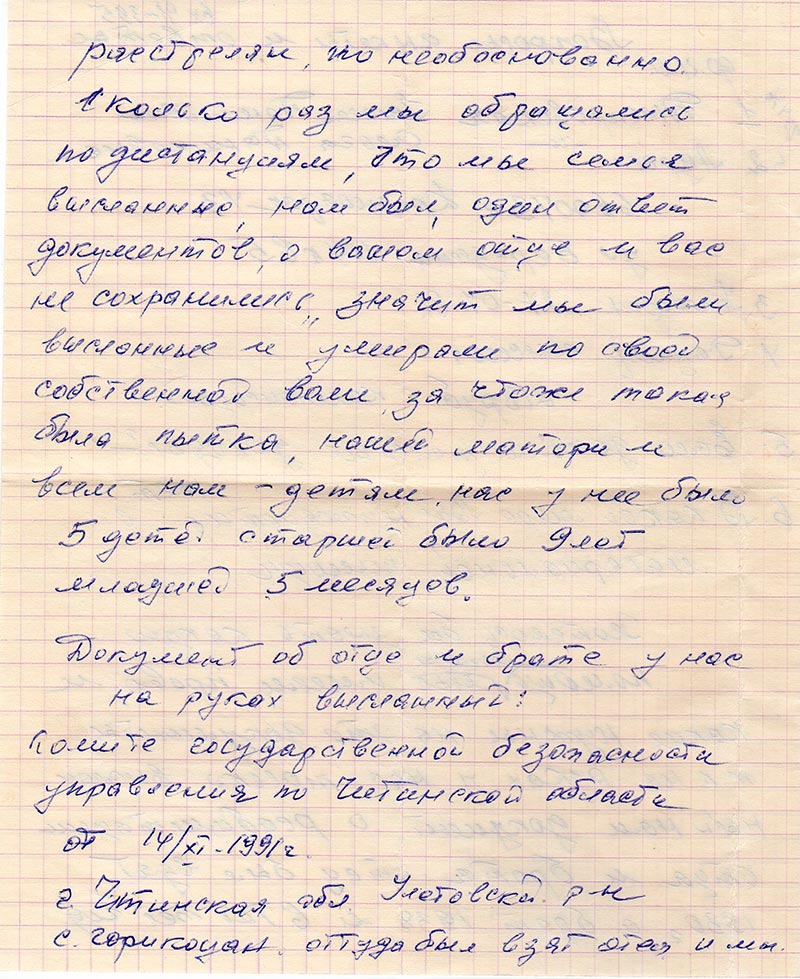 расстрелян, но необоснованно.
Сколько раз мы обращались
по дистанциям, что мы семья
высланные, нам был, один ответ
документов, о вашем отце и вас
не сохранились", значит мы были
высланные и умирали по своей
собственной воли, за чтоже такая
была пытка, нашей матери и
всем нам - детям, нас у нее было
5 детей старшей было 9 лет
младшей 5 месяцов.
Документ об отце и брате у нас
на руках высланный:
Комите государственной безопасности
управления по Читинской области
от 14/XI-1991г.
г. Читинская обл. Улетовской р-н
с. Горикоцан. оттуда был взят отец и мы.